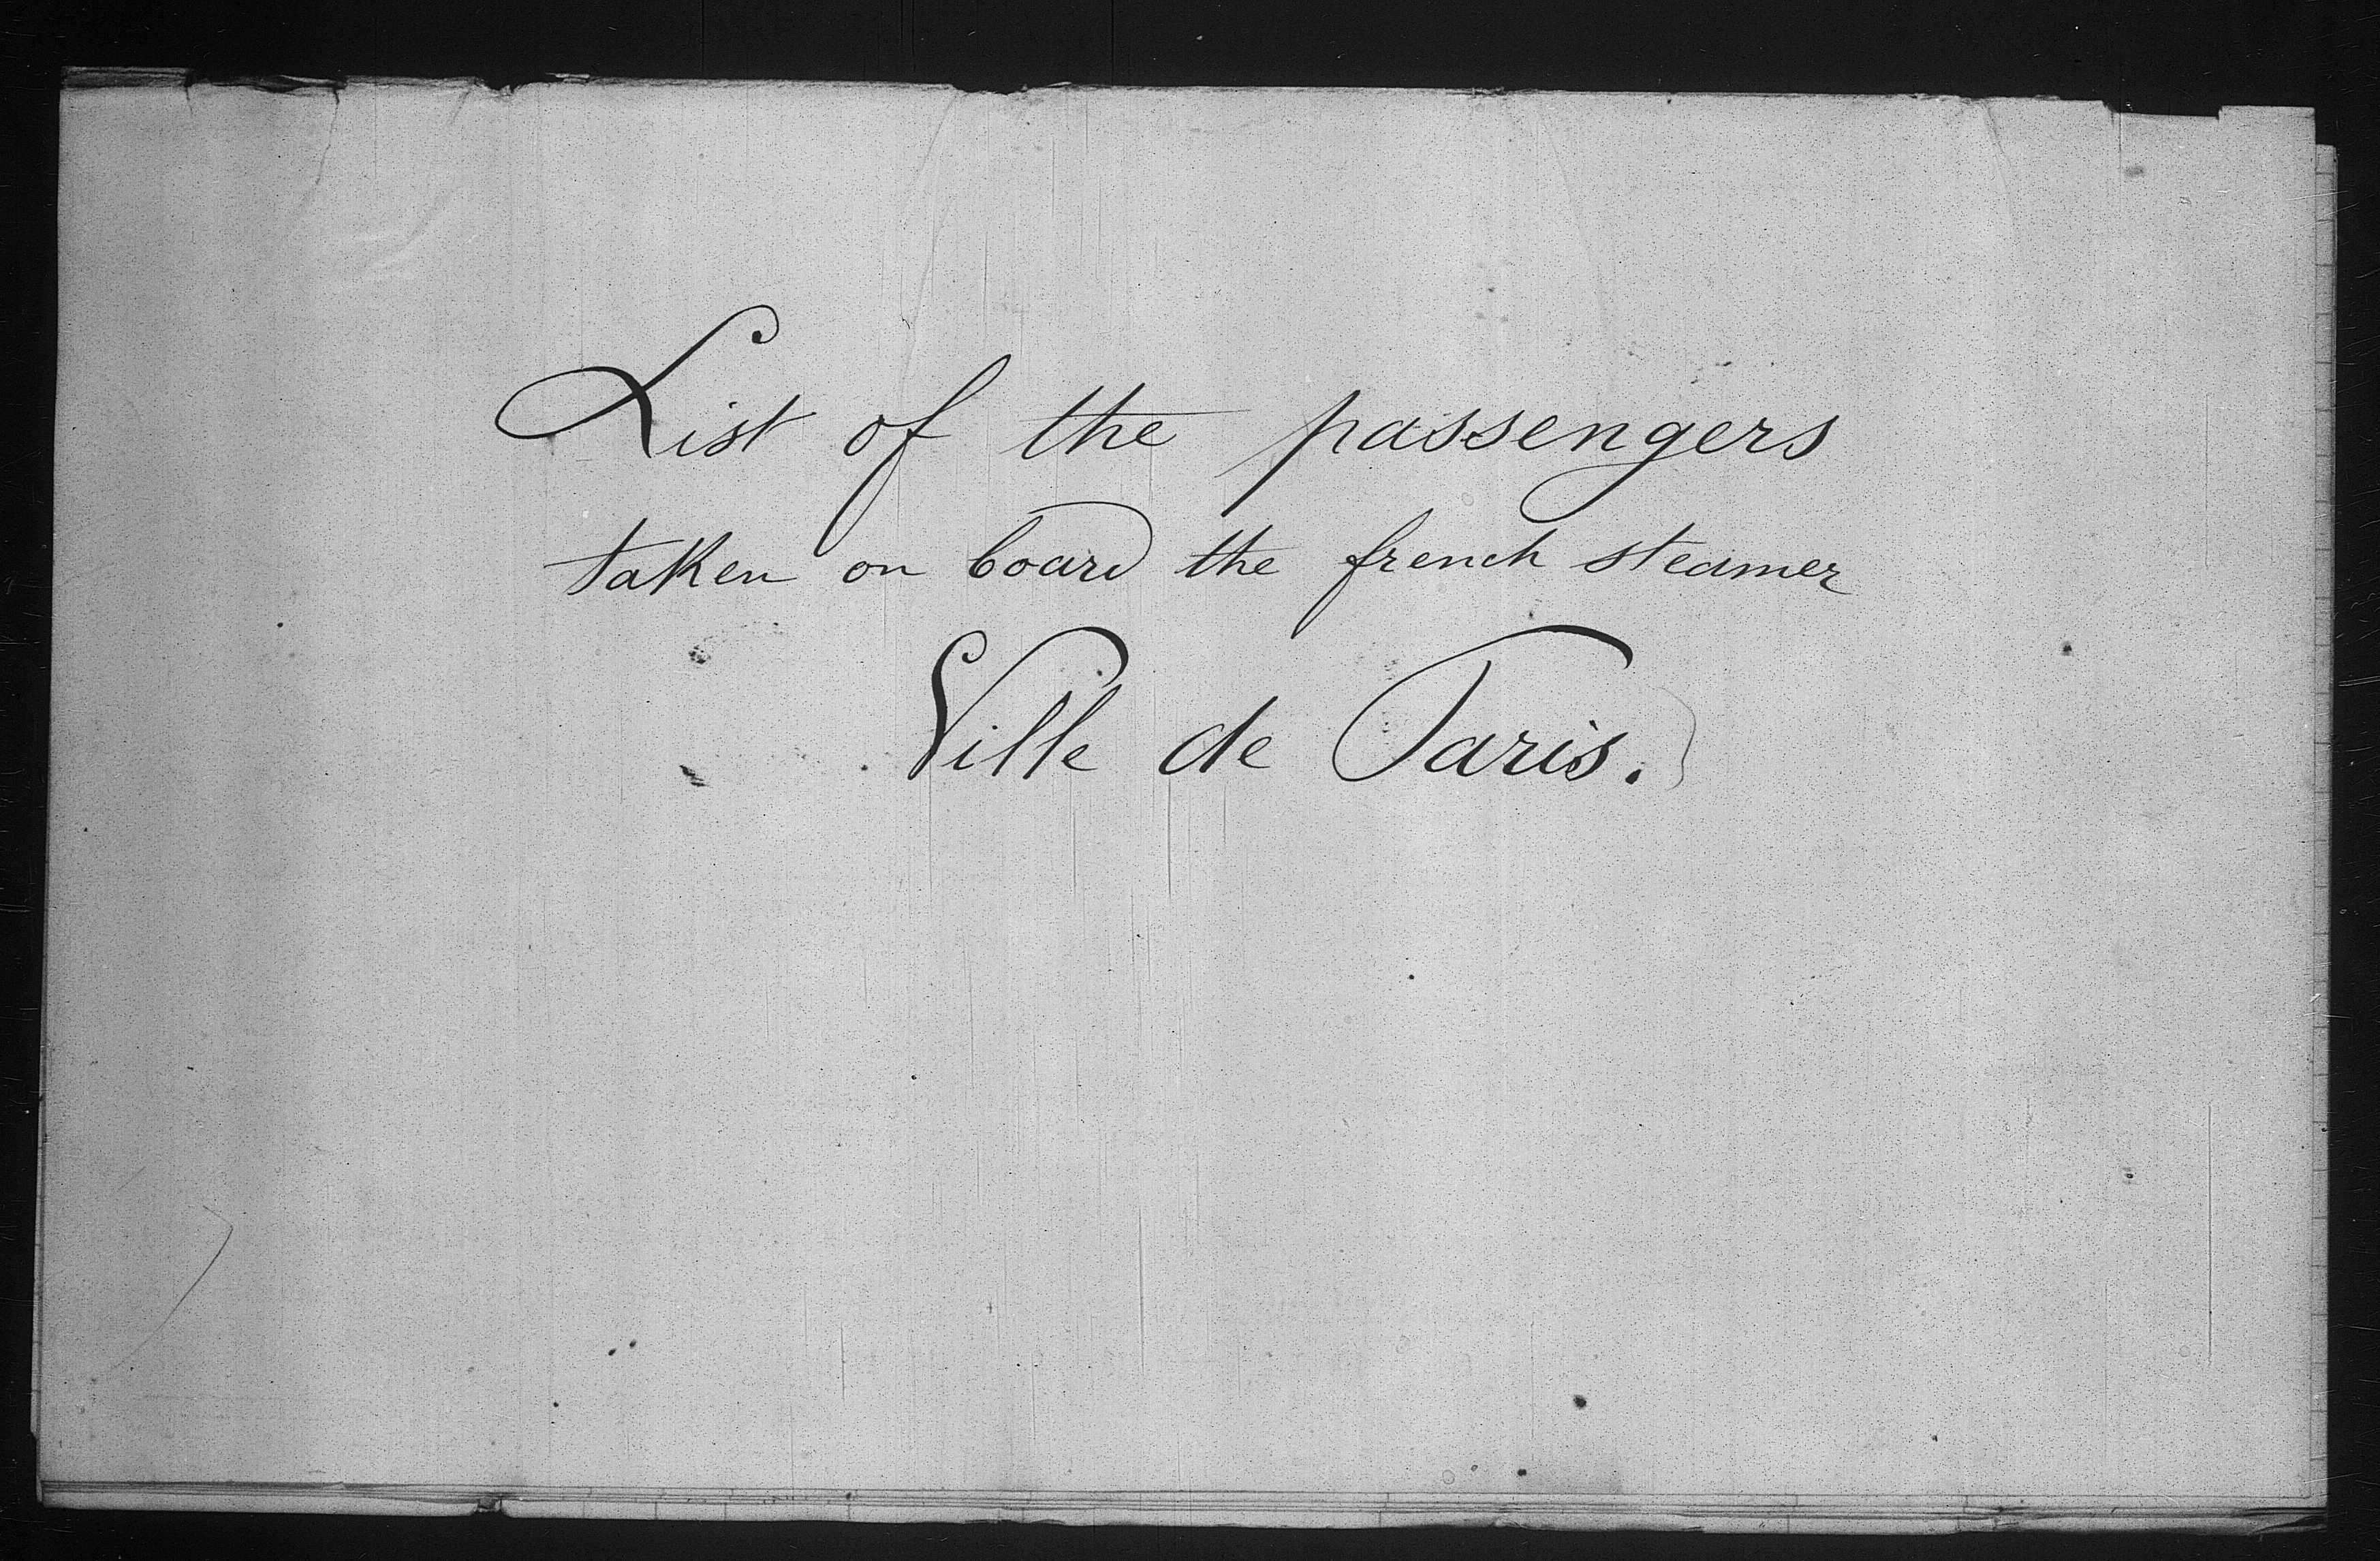 List of the passengers
taken on board the french steamer
Ville de Paris.